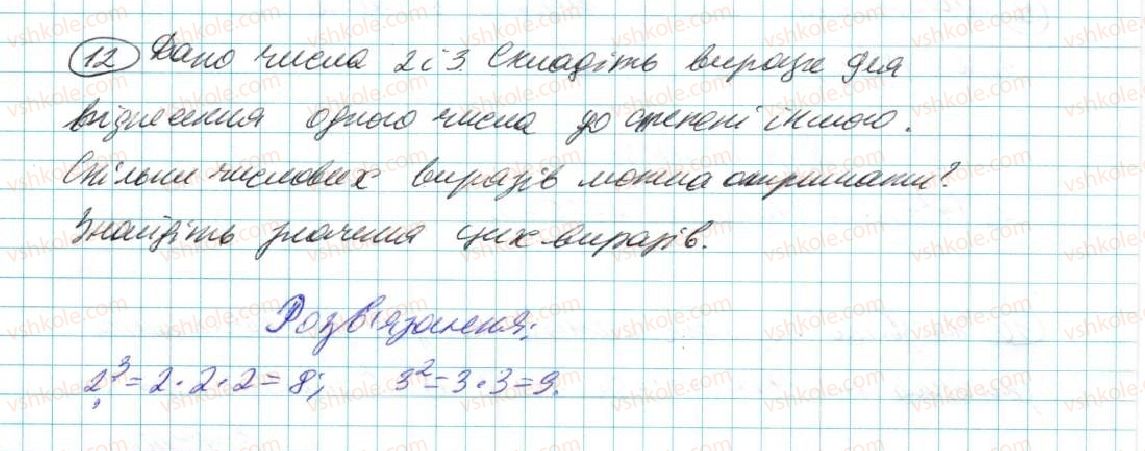 12 Дано числа 2 і 3. Складіть вирази для
візнесення одного числа до степені іншого.
Скільки числових виразів можна отримати?
Знайдіть значення цих виразів.
Розв'язання:
2³ = 2 · 2 · 2 = 8; 3² = 3 · 3 = 9.